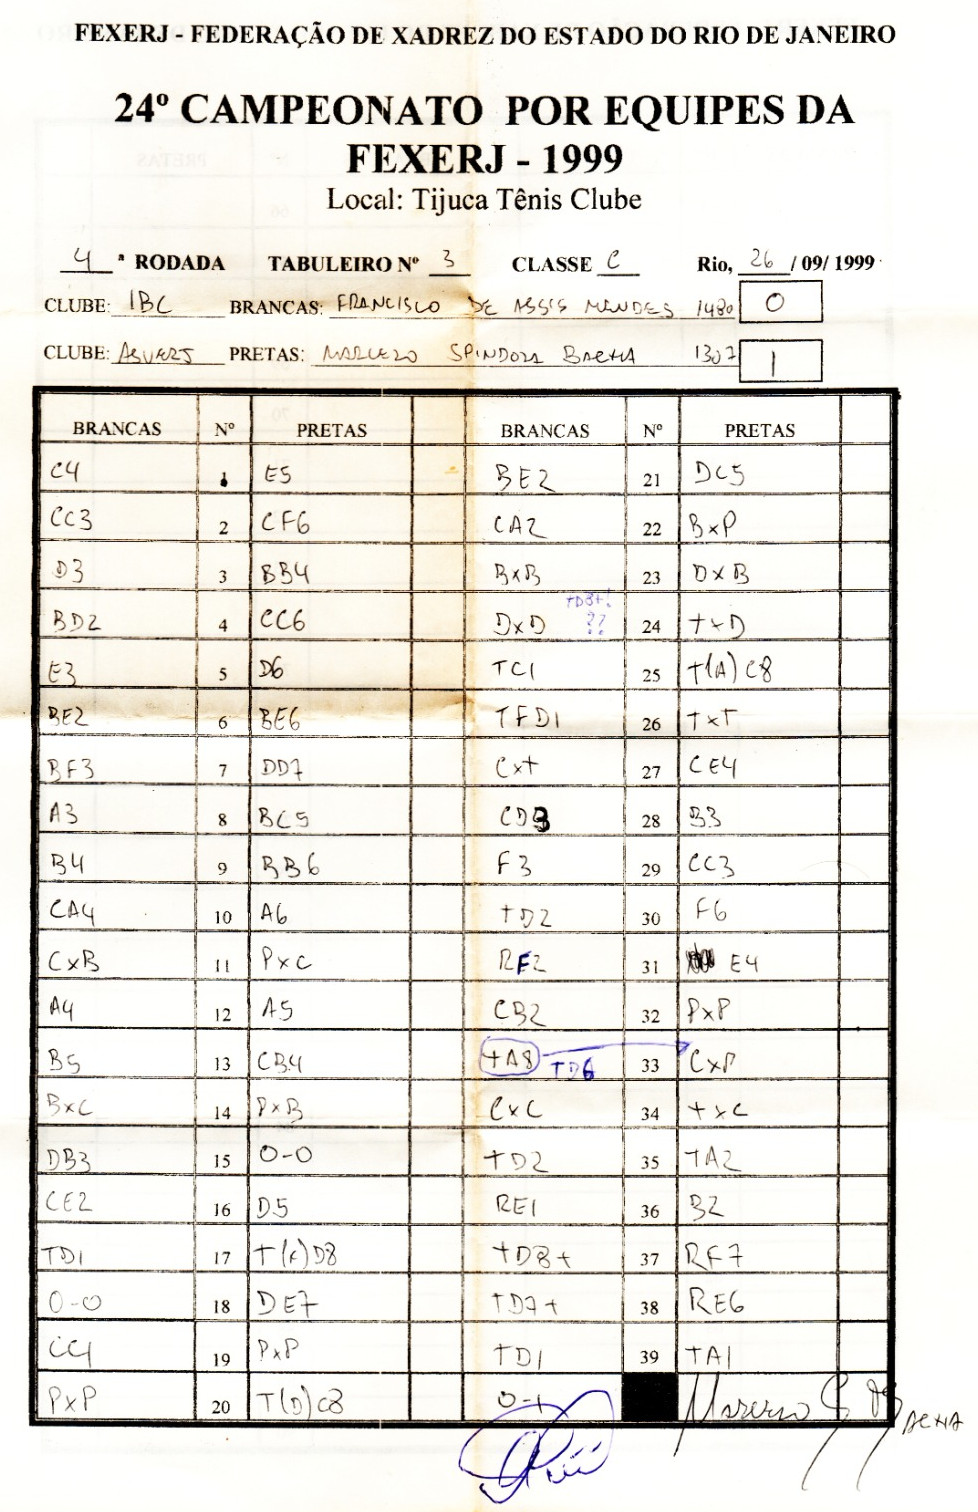 FEXERJ - FEDERAÇÃO DE XADREZ DO ESTADO DO RIO DE JANEIRO
24º CAMPEONATO POR EQUIPES DA
FEXERJ - 1999
Local: Tijuca Tênis Clube
4 ª RODADA TABULEIRO Nº 3 CLASSE C Rio, 26 / 09/ 1999
CLUBE: IBC BRANCAS: FRANCISCO DE ASSIS MENDES 1480 0
CLUBE: ASVERJ PRETAS: MARCELO SPINDOLA BACHA 1307 1
BRANCAS Nº PRETAS BRANCAS Nº PRETAS
C4 1 E5 BE2 21 DC5
CC3 2 CF6 CA2 22 BxP
D3 3 BB4 BxB 23 DxB
TD8+!
BD2 4 CC6 DxD ?? 24 TxD
E3 5 D6 TC1 25 T(A)C8
BE2 6 BE6 TFD1 26 TxT
BF3 7 DD7 CxT 27 CE4
A3 8 BC5 CD3 28 B3
B4 9 BB6 F3 29 CC3
CA4 10 A6 TD2 30 F6
CxB 11 PxC RF2 31 E4
A4 12 A5 CB2 32 PxP
B5 13 CB4 TA8 TD6 33 CxP
BxC 14 PxB CxC 34 TxC
DB3 15 O-O TD2 35 TA2
CE2 16 D5 RE1 36 B2
TD1 17 T(F)D8 TD8+ 37 RF7
O-O 18 DE7 TD7+ 38 RE6
CC1 19 PxP TD1 39 TA1
PxP 20 T(D)C8 0-1